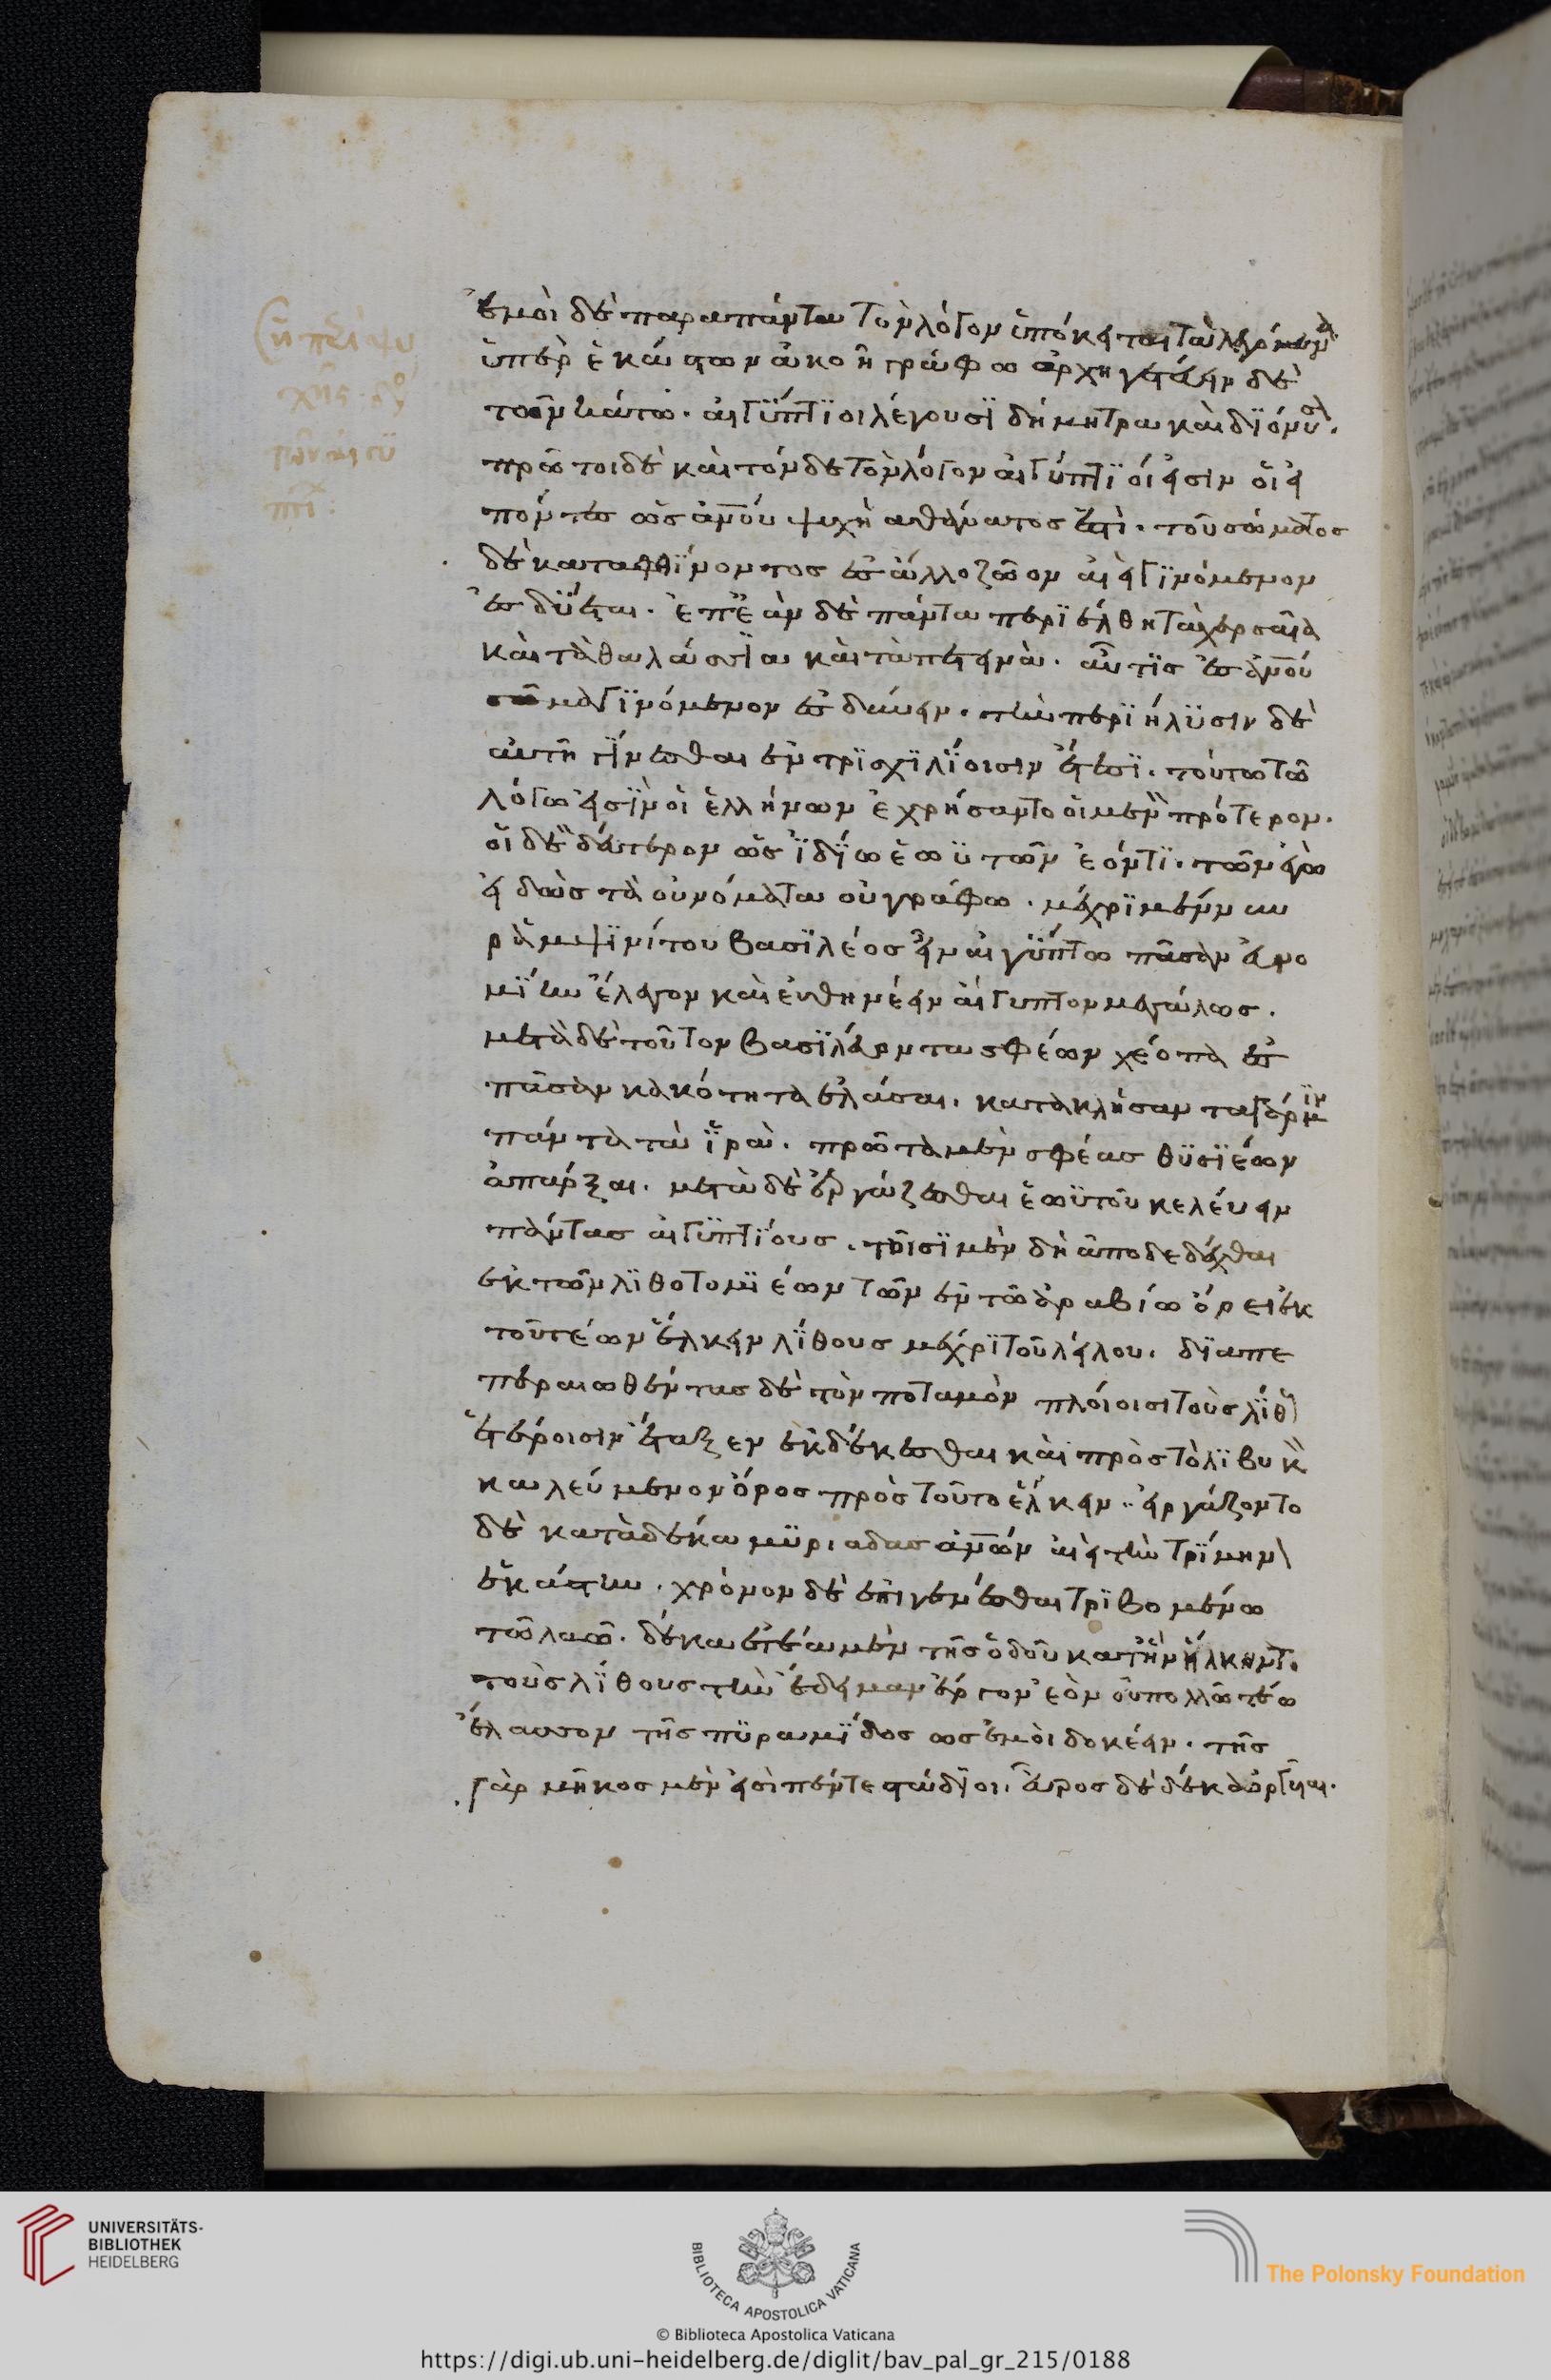 ἐμοὶ δὲ παρα πάντα τὸν λόγον ὑπόκειται τὰ λεγόμενα
ὑπερ ἑκάστων ἀκοῆ γράφω ἀρχηγετέειν δὲ
τῶν κάτω. αἰγύπτϊοι λέγουσϊ δήμητρα καὶ δϊόνυσον.
πρῶτοι δὲ καὶ τόνδε τὸν λόγον αἰγύπτϊοί εἰσιν οἱ εἰ
πόντες ὡς ἀνου ψυχὴ ἀθάνατος ἐστὶ. τοῦ σώματος
δὲ καταφθϊνοντος ἐς ἄλλο ζῶον αἰεὶ γϊνόμενον
ἐσδύεται. ἐπεὰν δὲ πάντα περϊέλθη τὰ χερσαῖα
καὶ τὰ θαλάσσϊα καὶ τὰ πετεινὰ. αὖτϊς ἐς ἀνου
σῶμα γϊνόμενον ἐσδύνειν. τὴν περϊήλϋσιν δὲ
αὐτῆ γΐνεσθαι ἐν τρϊσχϊλΐοισιν ἔτεσϊ. τούτω τῶ
λόγω εἰσϊν οἱ ἑλλήνων ἐχρήσαντο οἱ μὲν πρότερον.
οἱ δὲ δεύτερον ὡς ἰδΐω ἑωϋτῶν ἐόντϊ. τῶν ἐγὼ
εἰδὼς τὰ οὐνόματα οὐ γράφω. μέχρϊ μέν νυν
ῥαμψϊνίτου βασϊλέος εἶναι ἐν αἰγύπτω πᾶσαν εὐνο
μΐην ἔλεγον καὶ εὐθηνέειν αἴγυπτον μεγάλως.
μετὰ δὲ τοῦτον βασϊλεύοντα σφέων χέοπα ἐς
πᾶσαν κακότητα ἐλάσαι. κατακληίσαντα γάρ μιν
πάντα τὰ ϊρὰ. πρῶτα μὲν σφέας θϋσϊέων
ἀπάρξαι. μετὰ δὲ ἐργάζεσθαι ἑωϋτοῦ κελεύειν
πάντας αἰγϋπτΐους. τοῖσϊ μὲν δὴ ἀποδεδέχθαι
ἐκ τῶν λϊθοτομϊέων τῶν ἐν τῶ ἀραβίω ὄρει ἐκ
τουτέων ἕλκειν λΐθους μέχρϊ τοῦ νείλου. δϊαπε
περαιωθέντας δὲ τὸν ποταμὸν πλοίοισι τοὺς λΐθους
ἑτέροισιν ἔταξεν ἐκδέκεσθαι καὶ πρὸς τὸ λϊβυκὸν
καλεύμενον ὄρος πρὸς τοῦτο ἕλκειν. ἐργάζοντο
δὲ κατὰ δέκα μϋριάδας ἀνων αἰεὶ τὴν τρΐμηνον
ἑκάστην. χρόνον δὲ ἐπιγενέσθαι τρϊβομένω
τῶ λαῶ. δέκα ἔτεα μὲν τῆς ὁδοῦ κατ ἣν εἷλκον
τοὺς λΐθους τὴν ἔδειμαν ἔργον ἐὸν οὐ πολλῶ τέω
ἔλασσον τῆς πϋραμΐδος ὡς ἐμοὶ δοκέειν. τῆς
γὰρ μῆκος μὲν εἰσὶ πέντε στάδϊοι. εὖρος δὲ δέκα ὀργυιαι.
UNIVERSITÄTS-
BIBLIOTHEK
HEIDELBERG
BIBLIOTECA APOSTOLICA VATICANA
The Polonsky Foundation
© Biblioteca Apostolica Vaticana
https://digi.ub.uni-heidelberg.de/diglit/bav_pal_gr_215/0188